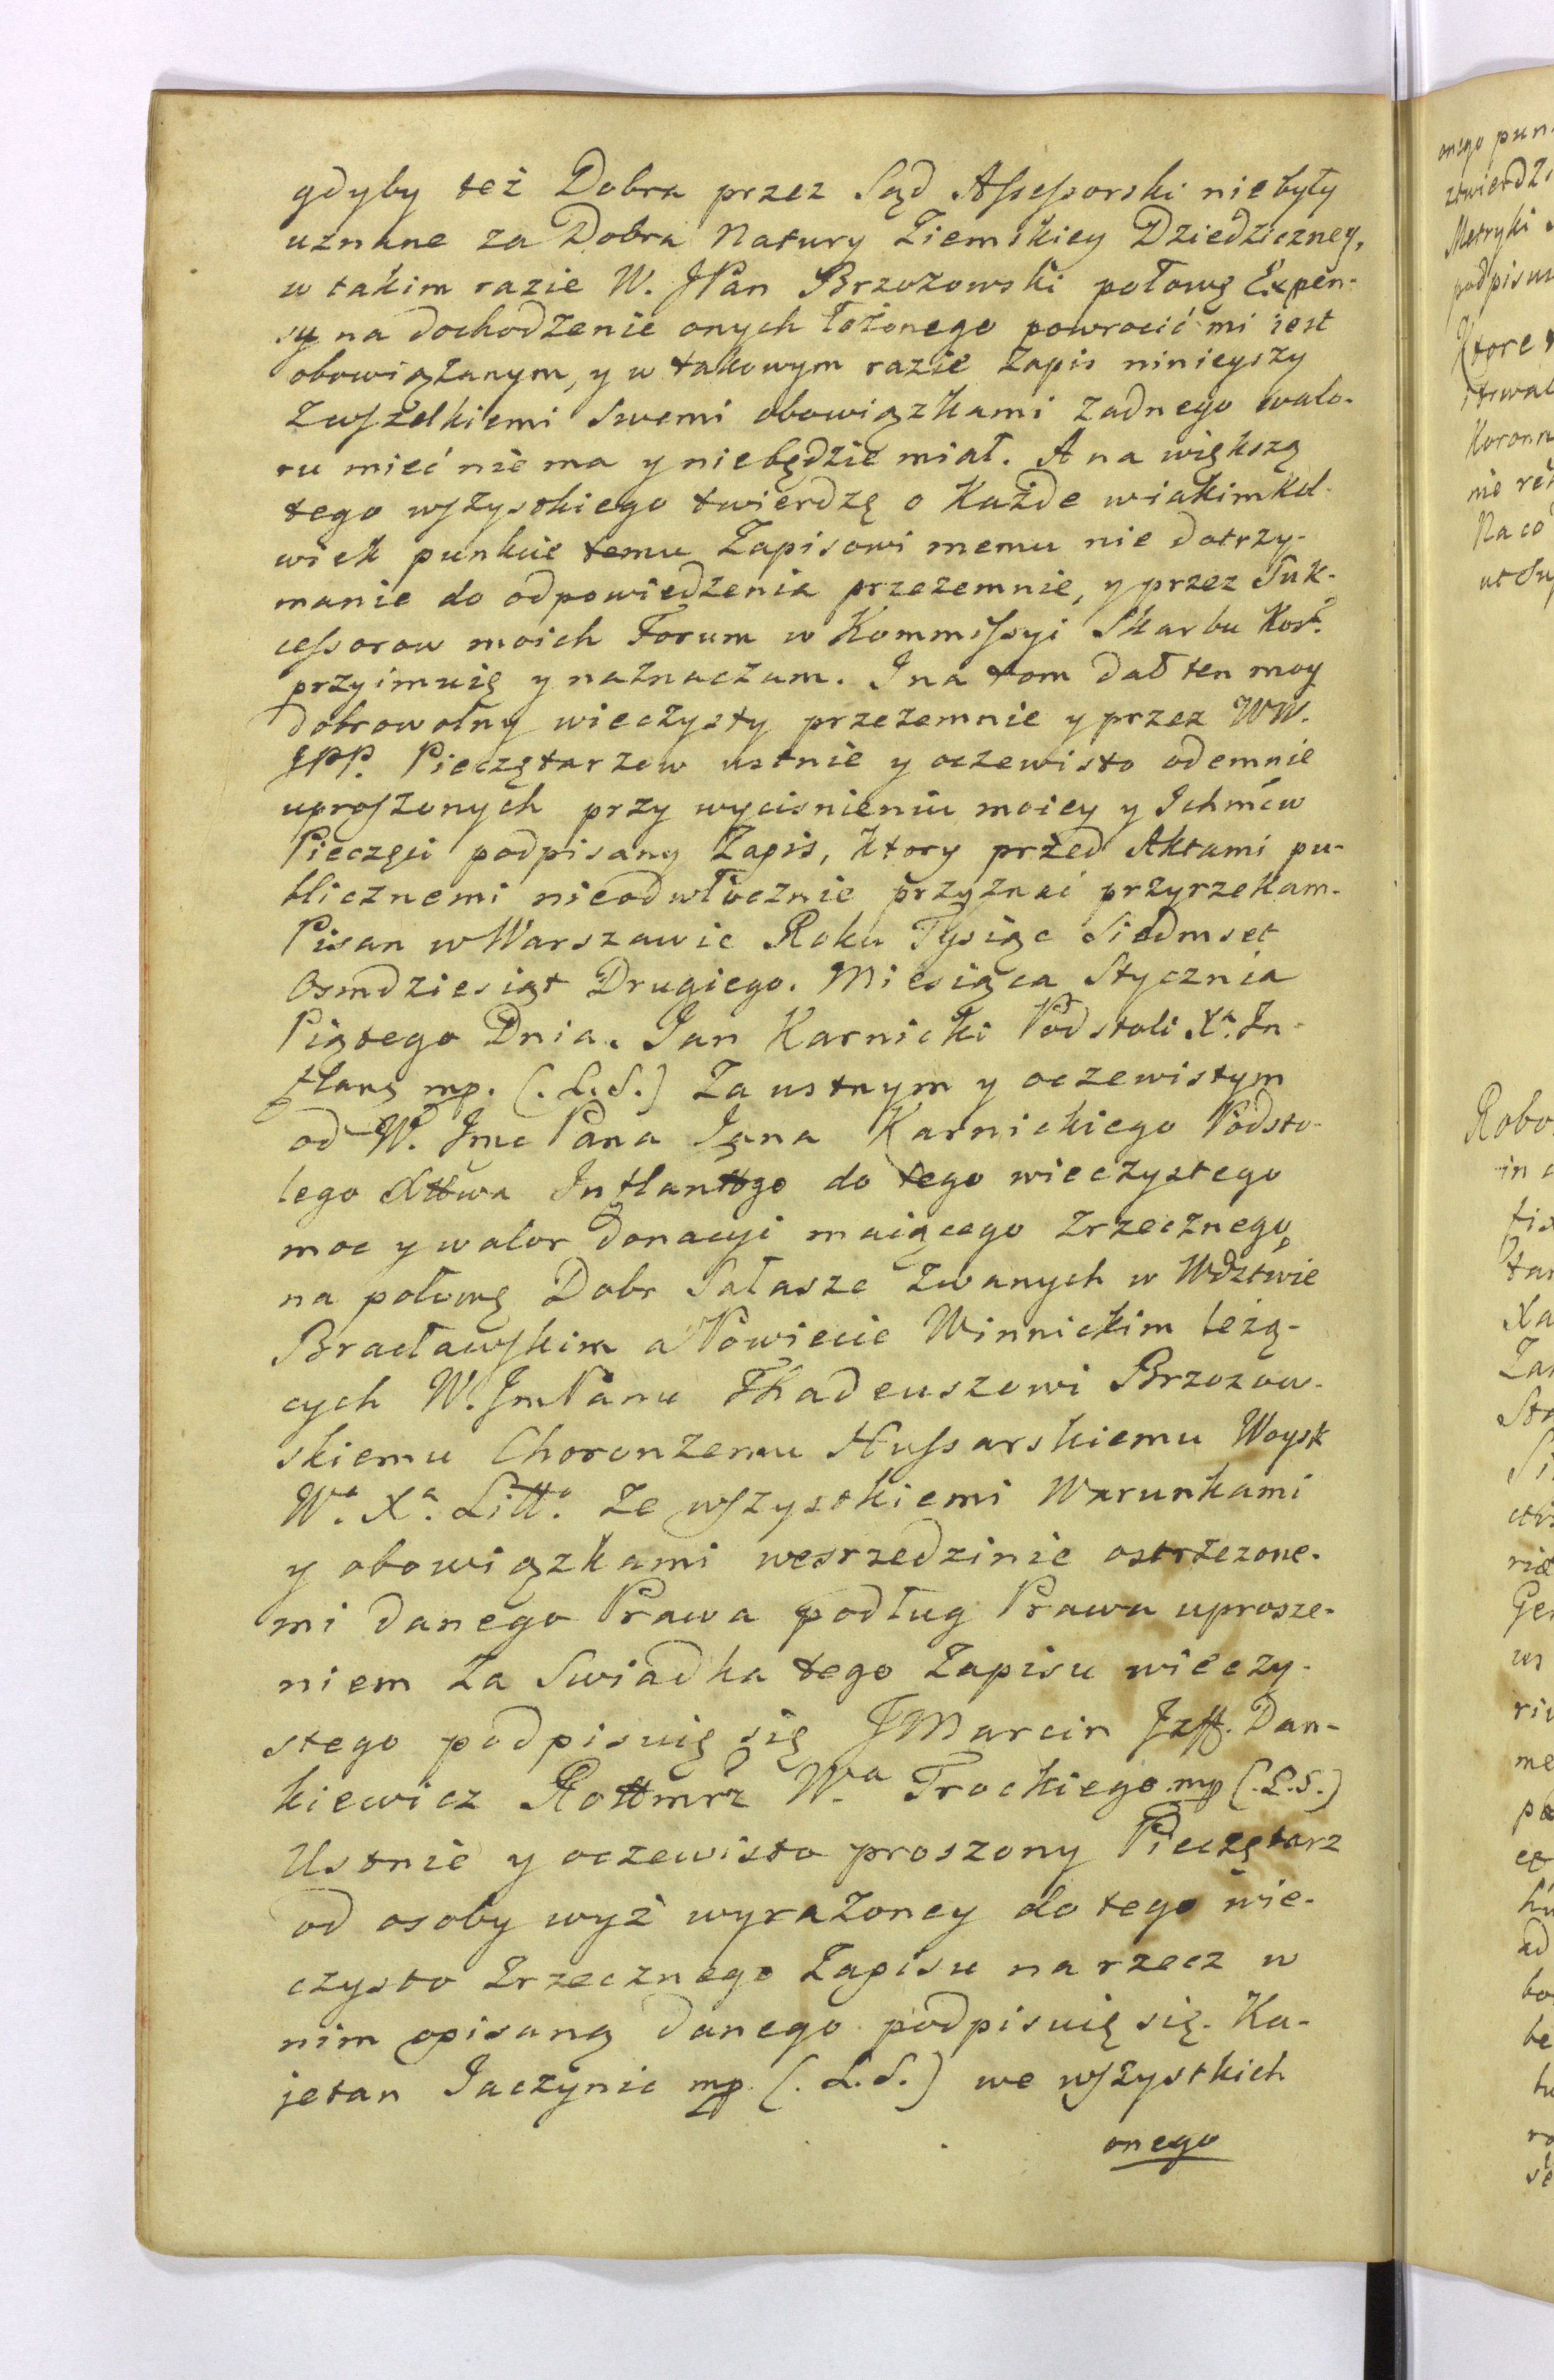 gdyby też Dobra przez Sąd Assessorski niebyły
uznane za Dobra Natury Ziemskiey Dziedziczney,
w takim razie W. JPan Brzozowski połowę Expen-
sy na dochodzenie onych łożonego powrocić mi iest
obowiązanym, y w takowym razie Zapis ninieyszy
Zwszelkiemi Swemi obowiązkami Zadnego walo-
ru mieć nie ma y niebędzie miał. A na większą
tego wszystkiego twierdzę o Każde wiakimkol-
wiek punkcie temu Zapisowi memu nie dotrzy-
manie do odpowiedzenia przezemnie, y przez Suk-
cessorow moich Forum w Kommissyi Skarbu Kor.
przyimuię y naznaczam. I na tom dał ten moy
dobrowolny wieczysty przezemnie y przez WW.
JPP. Pieczętarzow ustnie y oczewisto odemnie
uproszonych przy wycisnieniu moiey y Ichmców
Pieczęci podpisany Zapis, Ktory przed Aktami pu-
blicznemi nieodwłocznie przyznać przyrzekam.
Pisan w Warszawie Roku Tysiąc Siedmset
Osmdziesiąt Drugiego. Miesiąca Stycznia
Piątego Dnia. Jan Karnicki Podstoli Xa. In-
flang mp. (. L.S.) Za ustnym y oczewistym
od W. Jmc Pana Jana Karnickiego Podsto-
lego Xttwa Inflanttgo do tego wieczystego
moc y walor donacyi maiącego Zrzecznego
na połowę Dobr Sałasze Zwanych w Wdztwie
Bracławskim a Powiecie Winnickim leżą-
cych W. Jm Panu Thadeuszowi Brzozow-
skiemu Choronzemu Hussarskiemu Woysk
Wo. Xa. Litto. Ze wszystkiemi Warunkami
y obowiązkami wesrzedzinie ostrzezone-
mi danego Prawa podług Prawa uprosze-
niem Za Swiadka tego Zapisu wieczy-
stego podpisuię się JMarcin Dan-
kiewicz Rottmrz Wa. Trockiego mp (. L.S.)
Ustnie y oczewisto proszony Pieczętarz
od osoby wyż wyrażoney do tego wie-
czysto Zrzecznego Zapisu na rzecz w
nim opisaną danego podpisuię się. Ka-
jetan Jaczynic mp. (. L.S.) we wszystkich
onego